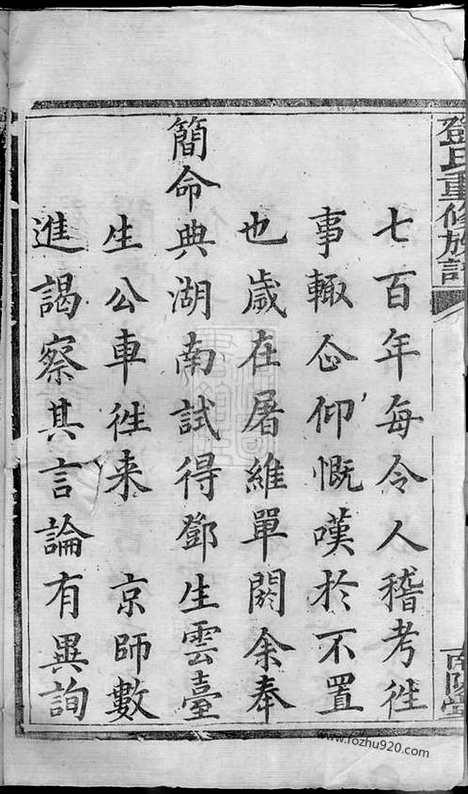 鄧氏重修族譜
南陽堂
七百年每令人稽考徃
事輙企仰慨嘆於不置
也歲在屠維單閼余奉
簡命典湖南試得鄧生雲臺
生公車徃来 京師數
進謁察其言論有異詢
www.fozhu920.com